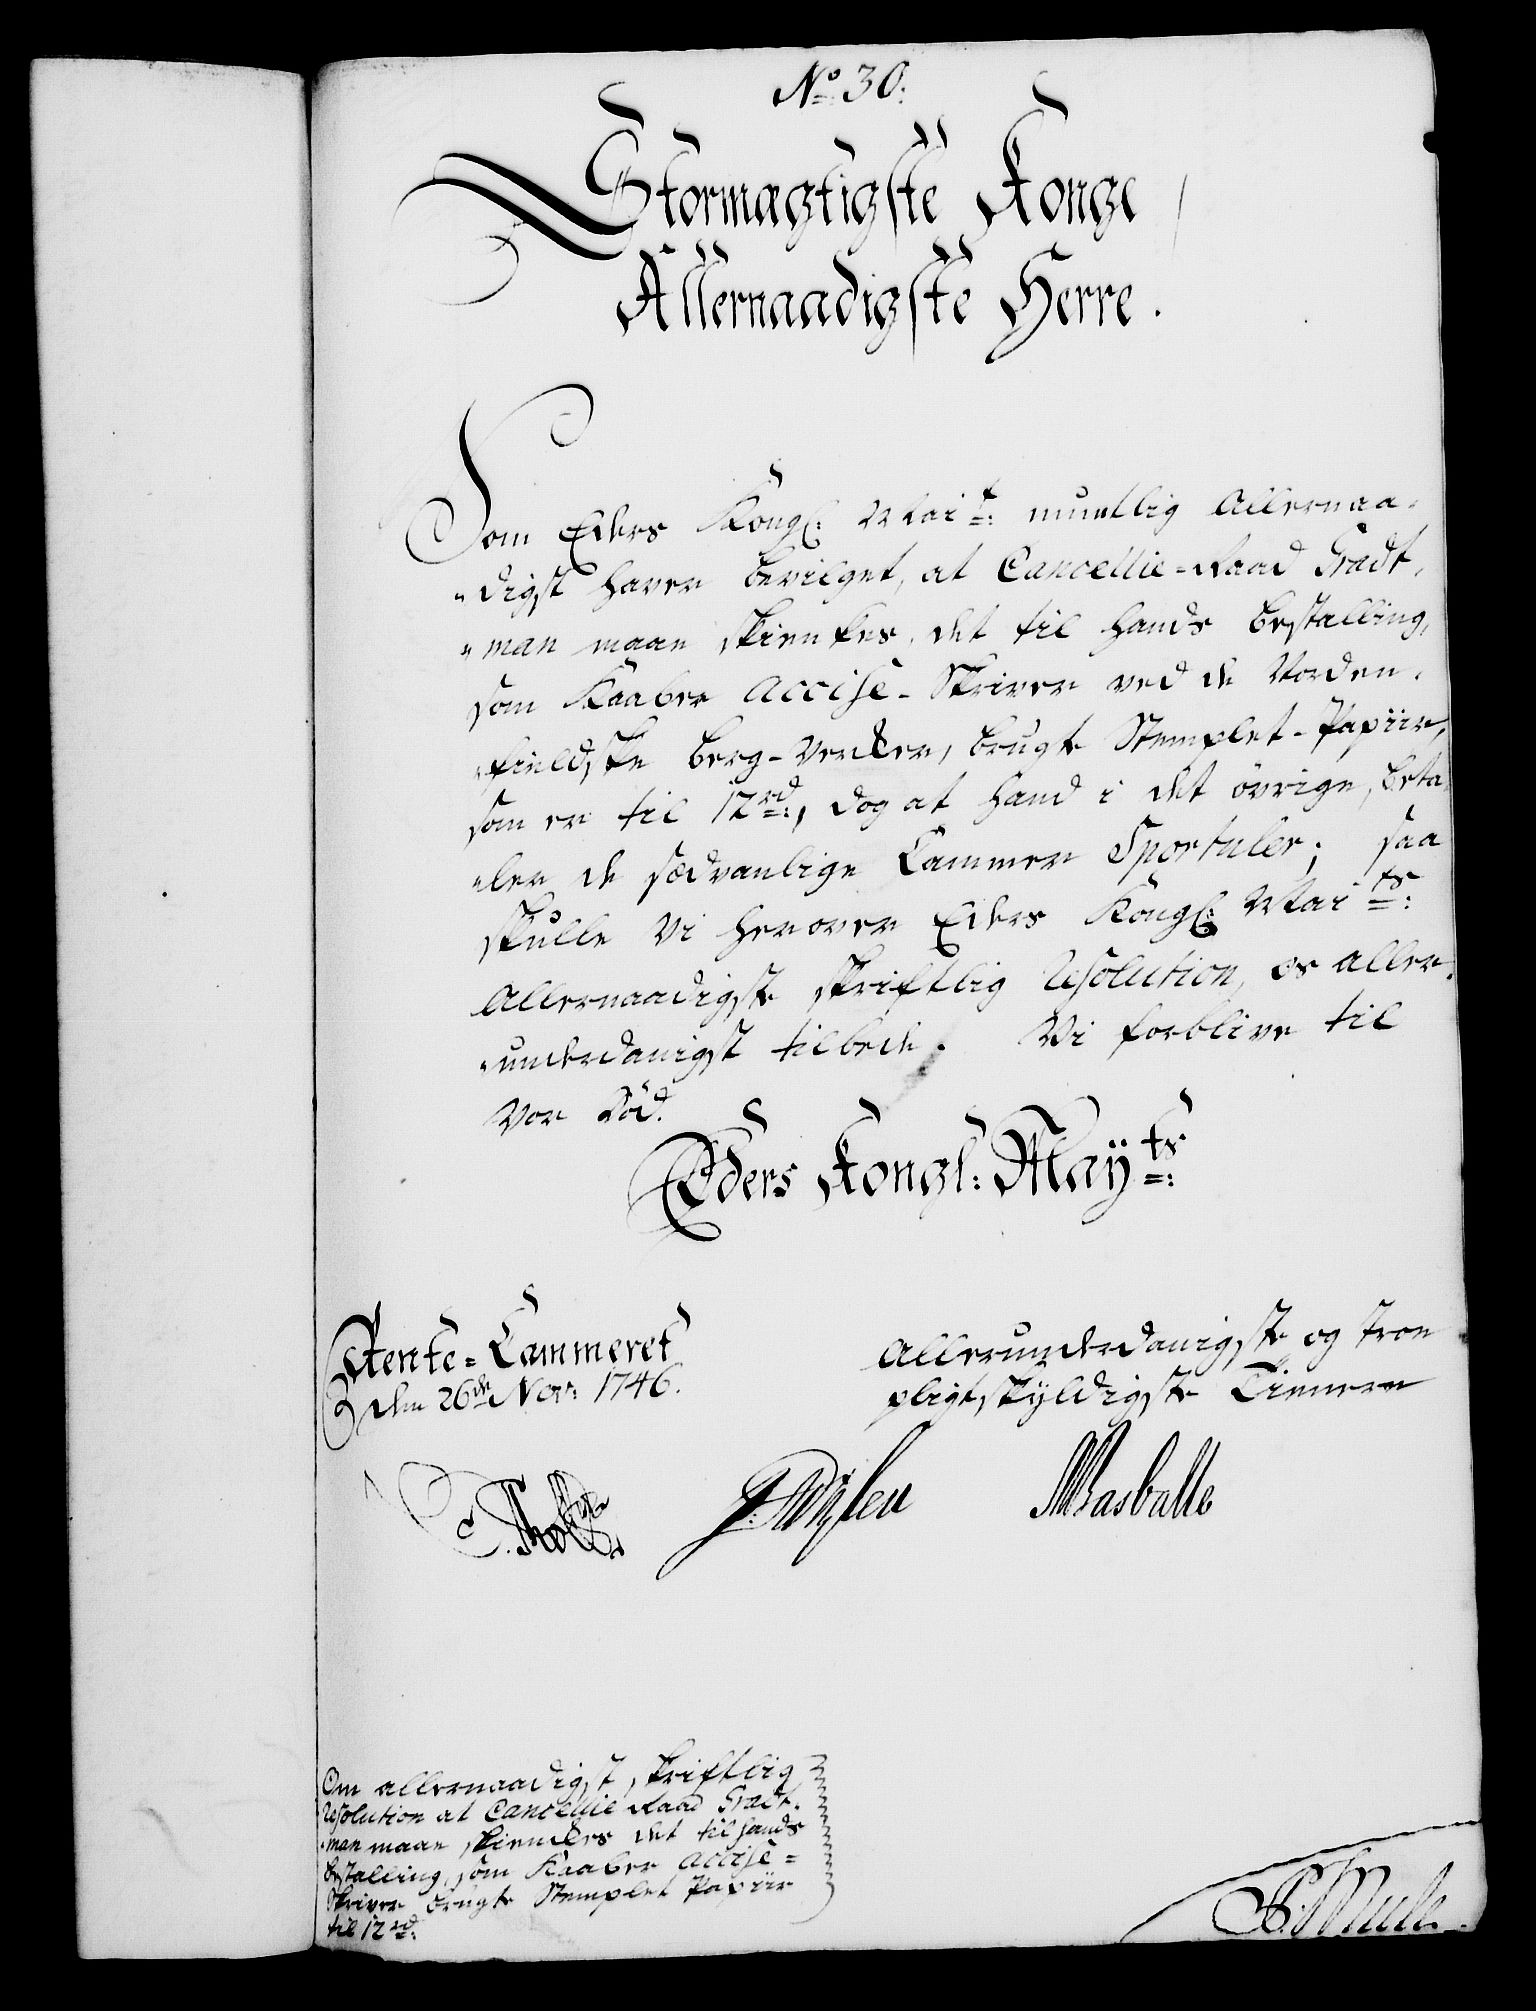 No 30:
Stormægtigste Konge
Allernaadigste Herre.
Som Eders Kongl: Mait: mundtlig Allernaa-
"digst haver bevilget, at Cancellie-Raad Gradt,
"man maae skienkes, det til hands bestalling,
som Kaaber Accise-Skriver ved de Norden-
"fieldske Berg-Verker, brugte Stemplet-Papiir,
som er til 12rd:, dog at hand i det övrige, beta-
"ler de sædvanlige Cammer Sportuler; saa
skulle Vi herover Eders Kongl: Maits:
Allernaadigste skriftlig Resolution, os aller-
"underdanigst tilbede. Vi forblive til
vor Död.
Eders Kongl: Mayts:
Rente-Cammeret
den 26de Nov: 1746.
Allerunderdanigste og troe
pligtskÿldigste Tienere
C. Tholle
Rasballe
Om allernaadigst skriftlig
Resolution at Cancellie Raad Gradt-
"man maae skienckes det til hands
bestalling, som Kaaber Accise=
Skriver brugte Stemplet Papiir
til 12rd:
Mule.